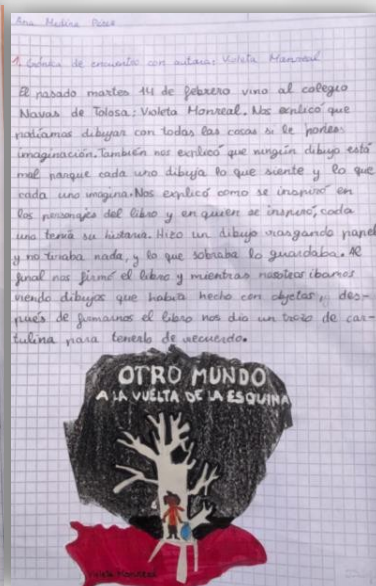 Ana Medina Pérez
1. Crónica de encuentro con autora: Violeta Monreal
El pasado martes 14 de febrero vino al colegio
Navas de Tolosa: Violeta Monreal. Nos explicó que
podíamos dibujar con todas las cosas si le pones
imaginación. También nos explicó que ningún dibujo está
mal porque cada uno dibuja lo que siente y lo que
cada uno imagina. Nos explicó como se inspiró en
los personajes del libro y en quien se inspiró, cada
uno tenía su historia. Hizo un dibujo rasgando papel
y no tiraba nada, y lo que sobraba lo guardaba. Al
final nos firmó el libro y mientras nosotros ibamos
viendo dibujos que había hecho con objetos, des-
pués de firmarnos el libro nos dio un trozo de car-
tulina para tenerlo de recuerdo.
OTRO MUNDO
A LA VUELTA DE LA ESQUINA
Violeta Monreal